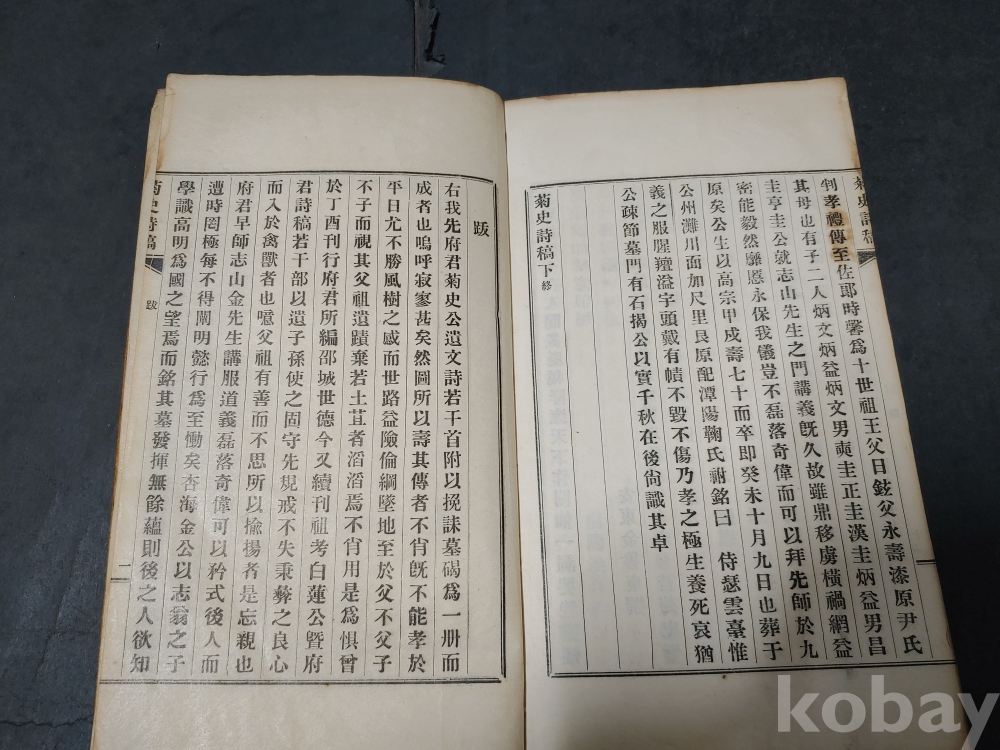 菊史詩稿
判孝禮傳至佐郞時馨爲十世祖王父日鉉父永壽漆原尹氏
其母也有子二人炳文炳益炳文男奭圭正圭漢圭炳益男昌
圭亨圭公就志山先生之門講義旣久故雖鼎移虜橫禍網益
密能毅然靡慝永保我儀豈不磊落奇偉而可以拜先師於九
原矣公生以高宗甲戌壽七十而卒卽癸未十月九日也葬于
公州灘川面加尺里艮原配潭陽鞠氏祔銘曰 侍瑟雲臺惟
義之服腥羶溢宇頭戴有幘不毁不傷乃孝之極生養死哀猶
公疎節墓門有石揭公以實千秋在後尙識其卓
菊史詩稿下 終
跋
右我先府君菊史公遺文詩若干首附以挽誄墓碣爲一册而
成者也嗚呼寂寥甚矣然圖所以壽其傳者不肖旣不能孝於
平日尤不勝風樹之感而世路益險倫綱墜地至於父不父子
不子而視其父祖遺蹟棄若土苴者滔滔焉不肖用是爲惧曾
於丁酉刊行府君所編邵城世德今又續刊祖考白蓮公曁府
君詩稿若干部以遺子孫使之固守先規戒不失秉彝之良心
而入於禽獸者也噫父祖有善而不思所以揄揚者是忘親也
府君早師志山金先生講服道義磊落奇偉可以矜式後人而
遭時罔極每不得闡明懿行爲至慟矣杏海金公以志翁之子
學識高明爲國之望焉而銘其墓發揮無餘蘊則後之人欲知
菊史詩稿
跋
一
kobay